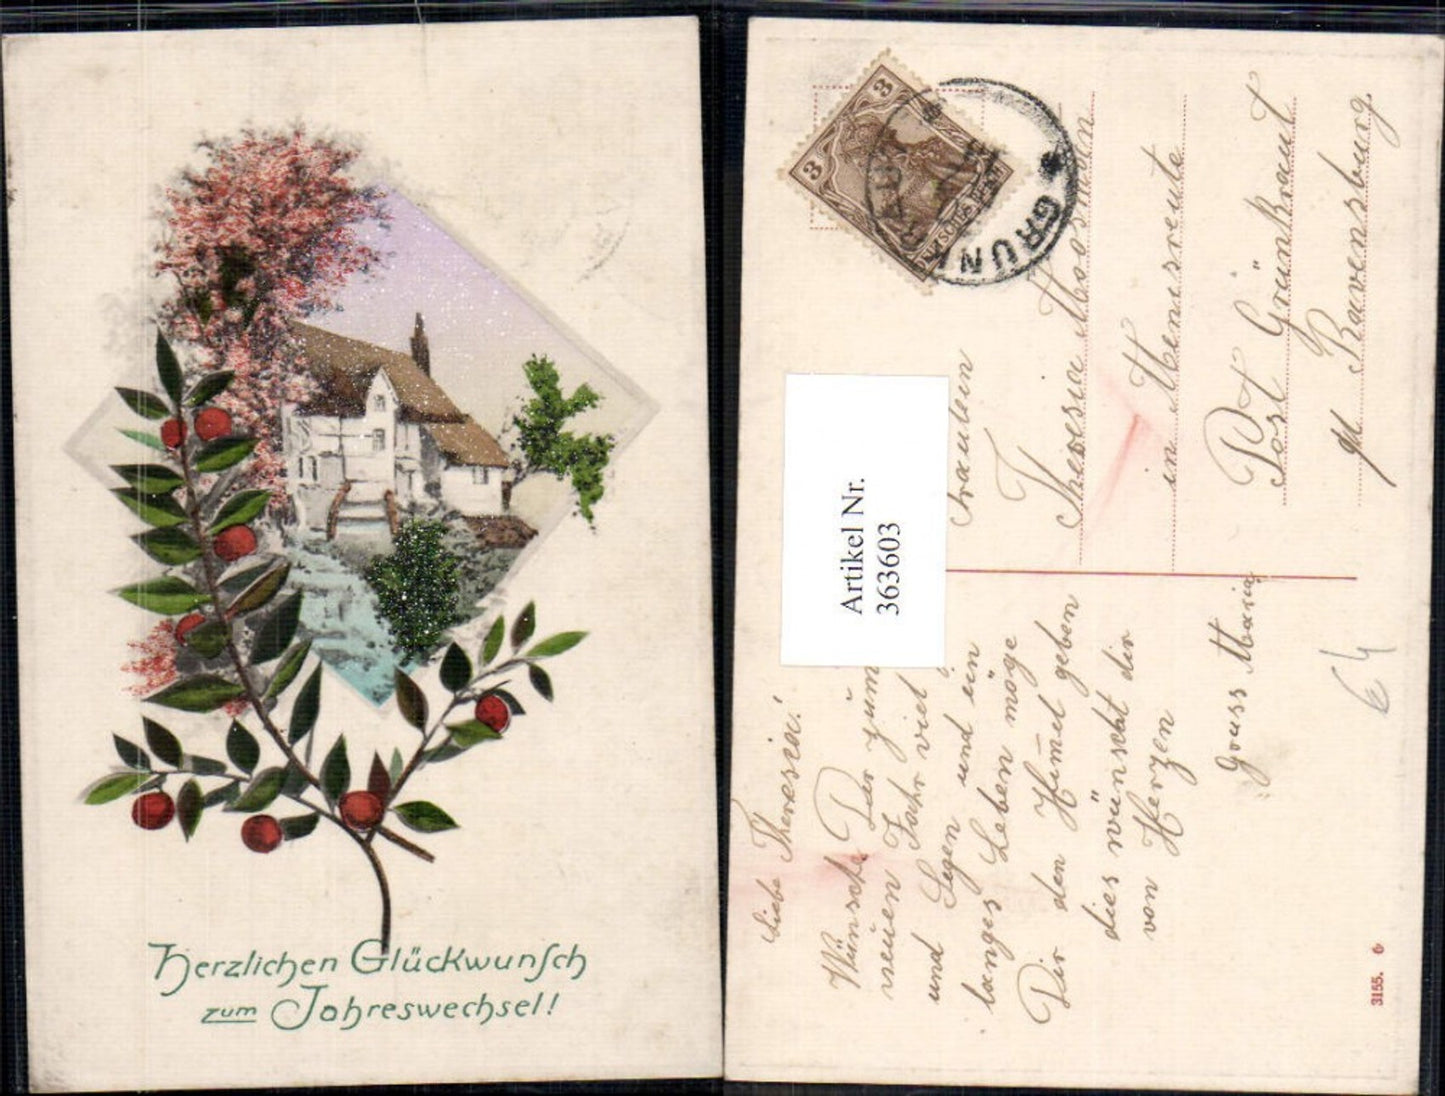 Herzlichen Glückwunsch
zum Jahreswechsel!
3
3
GRÜNK
Artikel Nr.
363603
Fräulein
Theresia Moosmann
in Menisreute
Post Grünkraut
bei Ravensburg.
Liebe Theresia!
Wünsche Dir zum
neuen Jahr viel
und Segen und ein
langes Leben möge
Dir den Himmel geben
dies wünscht dir
von Herzen
Gruss Maria
3155. 6